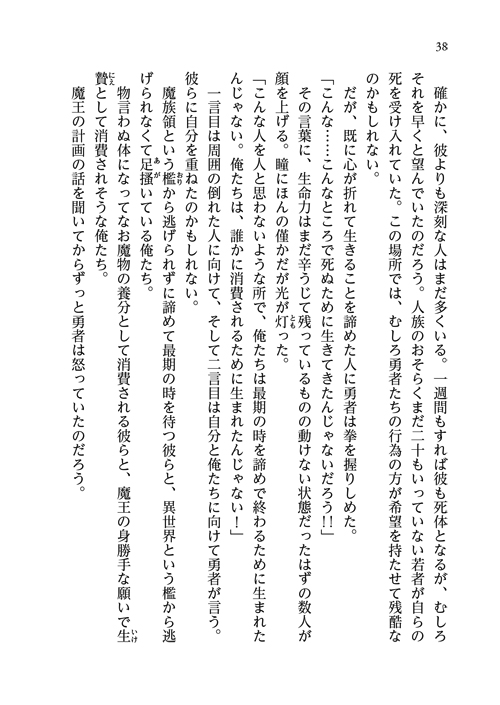 38
確かに、彼よりも深刻な人はまだ多くいる。一週間もすれば彼も死体となるが、むしろ
それを早くと望んでいたのだろう。人族のおそらくまだ二十もいっていない若者が自らの
死を受け入れていた。この場所では、むしろ勇者たちの行為の方が希望を持たせて残酷な
のかもしれない。
だが、既に心が折れて生きることを諦めた人に勇者は拳を握りしめた。
「こんな……こんなところで死ぬために生きてきたんじゃないだろう!!」
その言葉に、生命力はまだ辛うじて残っているものの動けない状態だったはずの数人が
顔を上げる。瞳にほんの僅かだが光が灯った。
「こんな人を人と思わないような所で、俺たちは最期の時を諦めで終わるために生まれた
んじゃない。俺たちは、誰かに消費されるために生まれたんじゃない！」
一言目は周囲の倒れた人に向けて、そして二言目は自分と俺たちに向けて勇者が言う。
彼らに自分を重ねたのかもしれない。
魔族領という檻から逃げられずに諦めて最期の時を待つ彼らと、異世界という檻から逃
げられなくて足掻いている俺たち。
物言わぬ体になってなお魔物の養分として消費される彼らと、魔王の身勝手な願いで生
贄として消費されそうな俺たち。
魔王の計画の話を聞いてからずっと勇者は怒っていたのだろう。